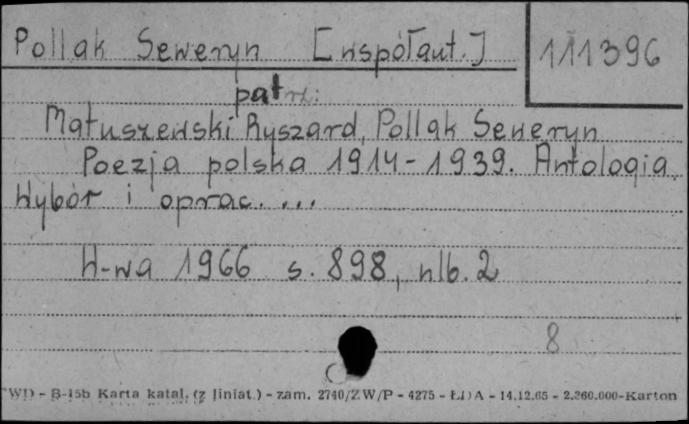 Pollak Seweryn [współaut.]
111396
patrz:
Matuszewski Ryszard, Pollak Seweryn
Poezja polska 1914-1939. Antologia.
Wybór i oprac. ...
W-wa 1966 s. 898, nlb. 2
8
WD - B-15b Karta katal. (z liniat.) - zam. 2740/ZW/P - 4275 - ŁDA - 14.12.65 - 2.360.000-Karton